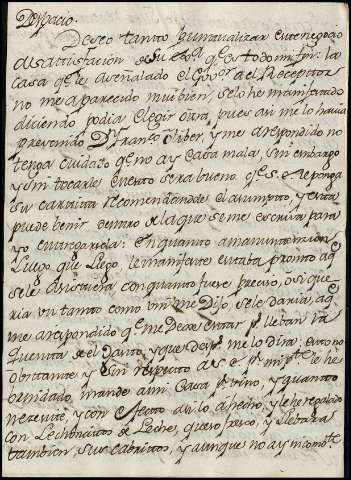 Despacio.
Deseo tanto puntualizar este negocio
a la satisfaccion de su q.e todo mi la
casa q.e le a señalado el Gov.or a el Receptor
no me a parecido mui bien, se lo he manifestado
diciendo podia elegir otra, pues asi me lo havia
prevenido D.n Fran.co Oliber, y me a respondido no
tenga cuidado q.e no ay casa mala, sin embargo
y sin tocarle cuento sera bueno q.e ponga
su cartita recomendando el asumpto, y esta
puede benir dentro de la que se me escriva para
yo entregarsela: En quanto a manutencion
luego que llego le manifeste estaba pronto a q.e
se le asistiera con quanto fuese preciso, o si que
ria un tanto como vm me dijo se le daria, a q.e
me a respondido q.e me deve estar p.r llevan la
quenta de el Gasto, y que desp.s me lo dira; esto no
obstante y sin respecto a p.r mi p.te le he
brindado, mande a mi casa p.r vino, y quanto
nezesite, y con efecto asi lo a hecho, y le he regalado
con Lechoncitos de Leche, queso fresco, y llebara
tambien sus cabritos, y aunque no ay